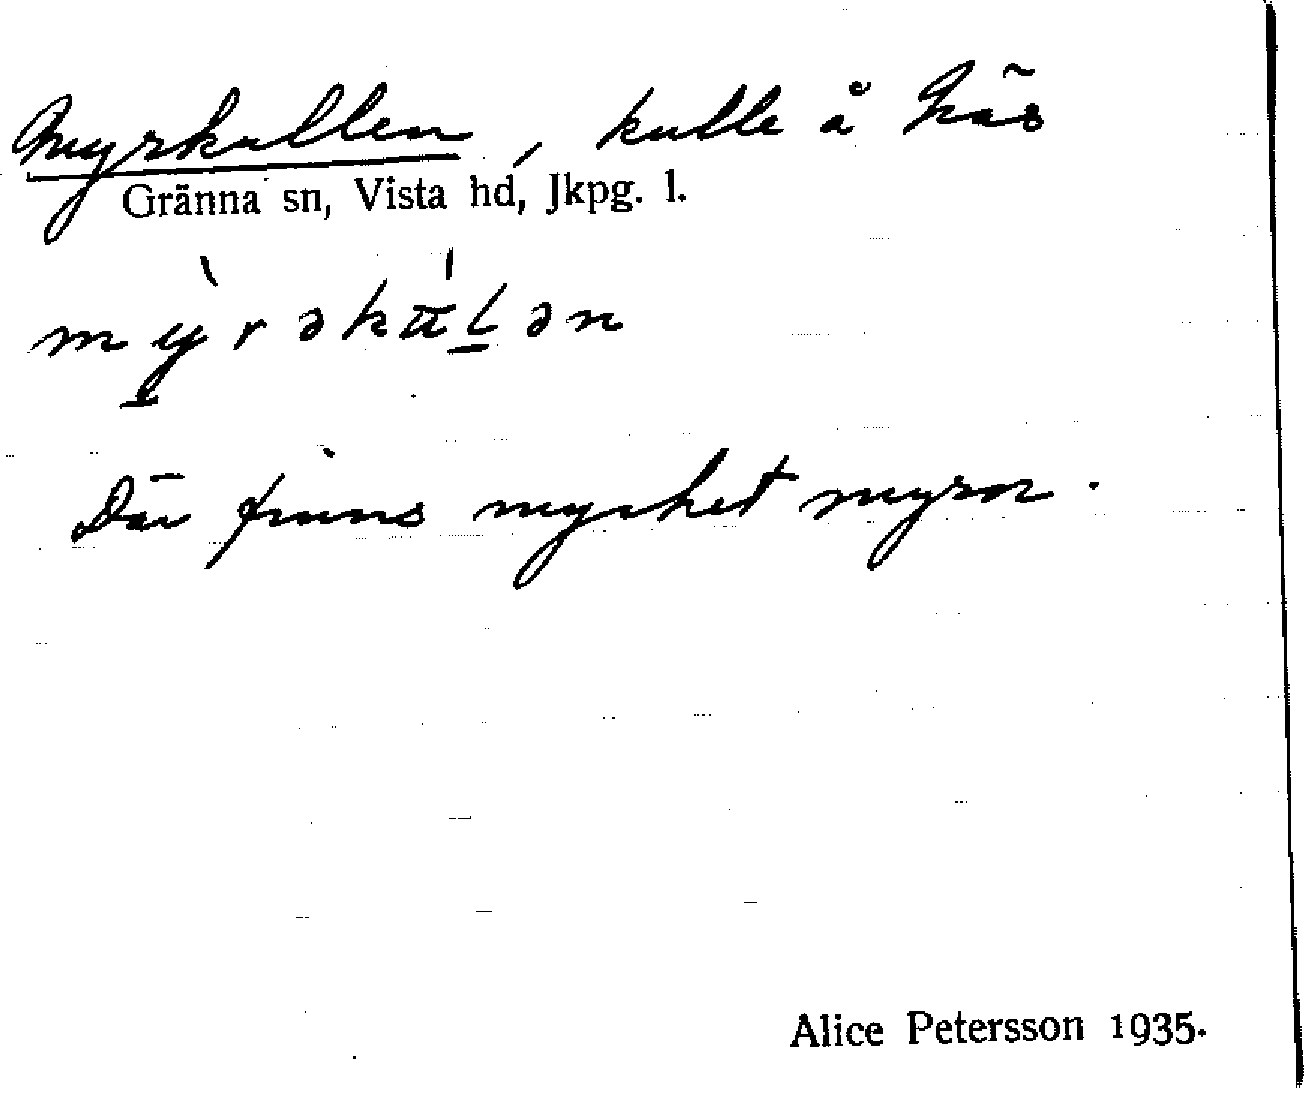 Myrkullen, kulle å Näs
Gränna sn, Vista hd, Jkpg. l.
Där finns mycket myror.
Alice Petersson 1935.